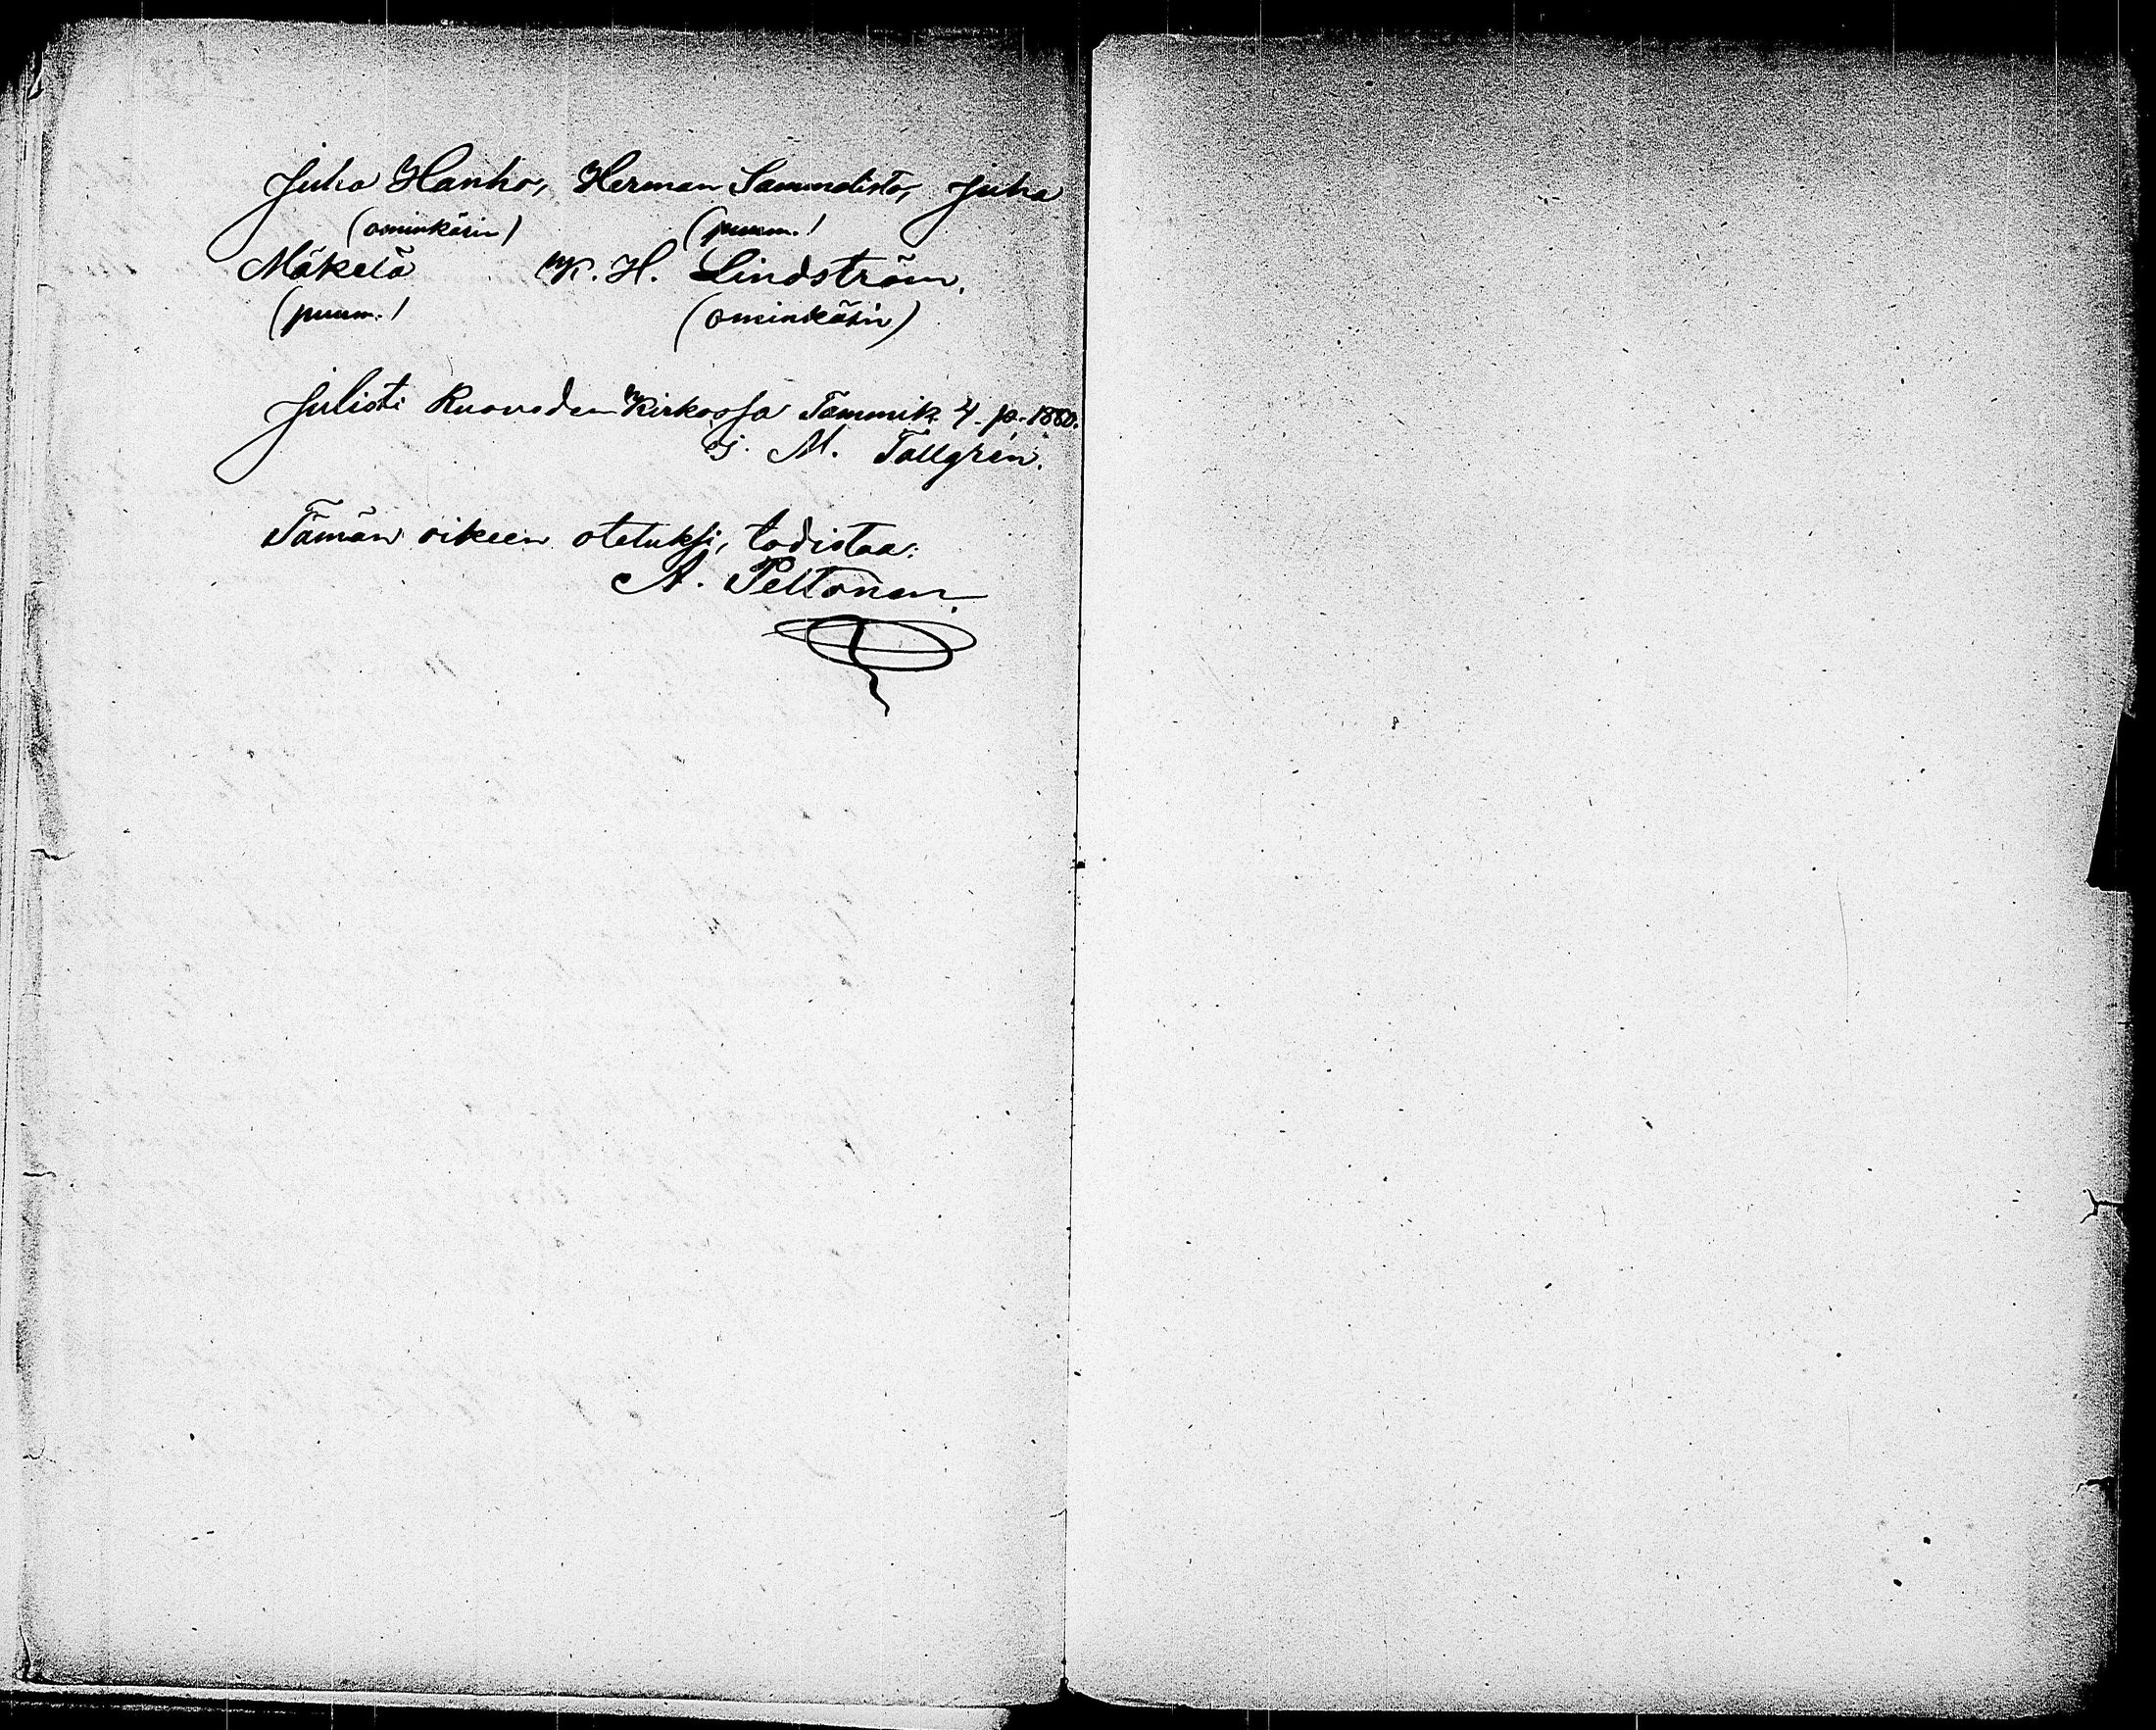 Juho Hanho, Herman Sammalisto, Juha
(ominkäsin) (puum.)
Mäkelä K. H. Lindström.
(puum.) (ominkäsin)
Julisti Ruoveden Kirkossa Tammik. 4. p. 1880.
G. M. Tallgrén.
Tämän oikeen otetuksi, todistaa:
A. Peltonen.